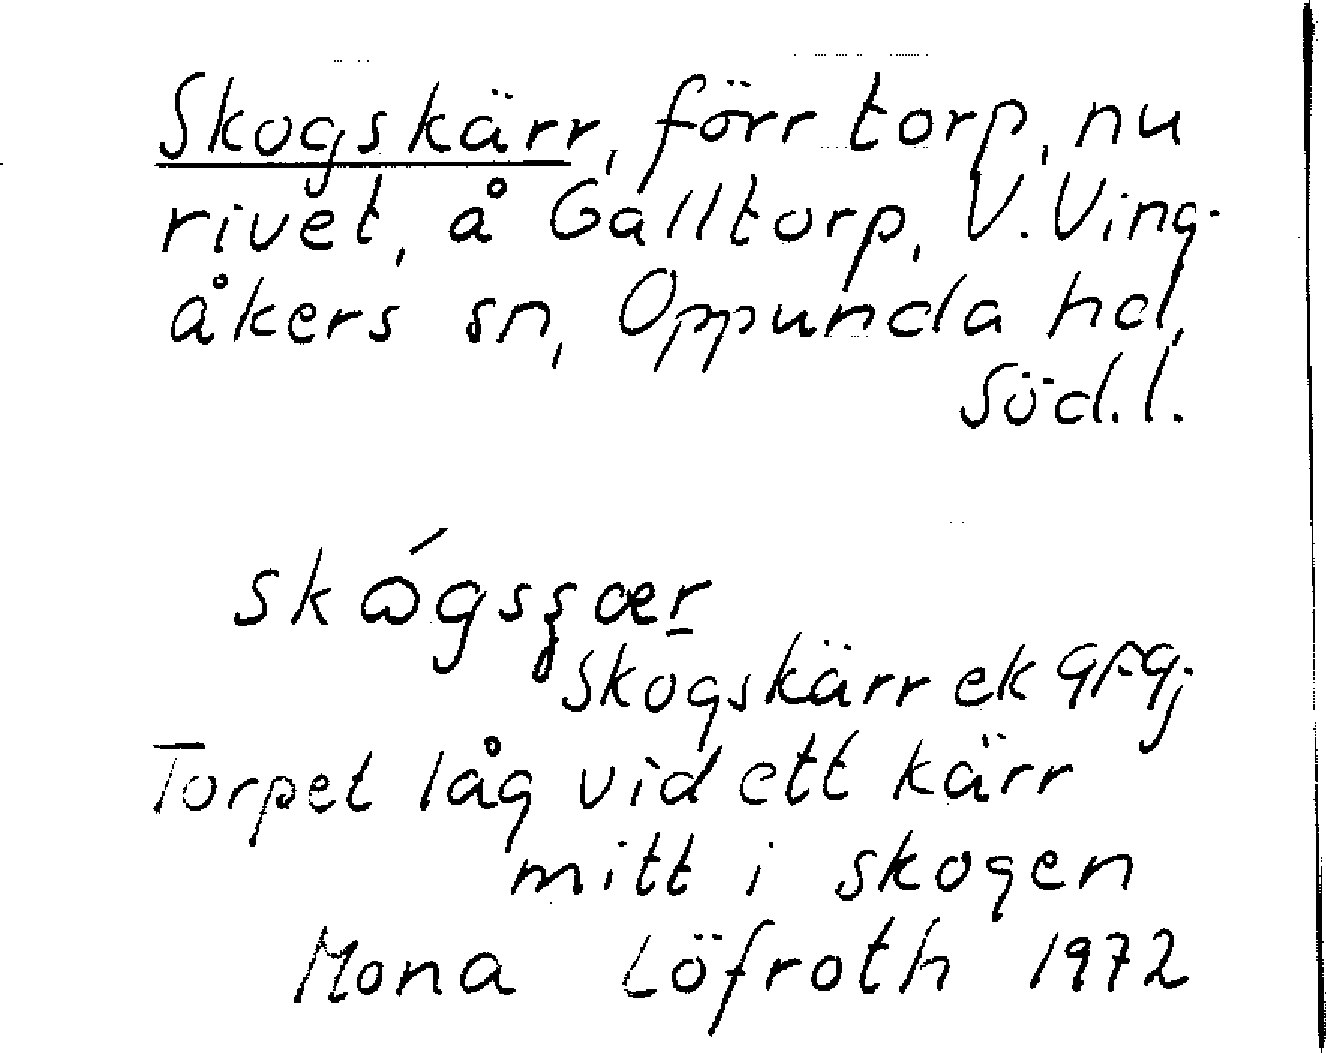 Skogskärr, förr torp, nu
rivet, å Galltorp, V. Ving-
åkers sn, Oppunda hd,
Söd.l.
Skogskärr ek 9F9j
Torpet låg vid ett kärr
mitt i skogen
Mona Löfroth 1972